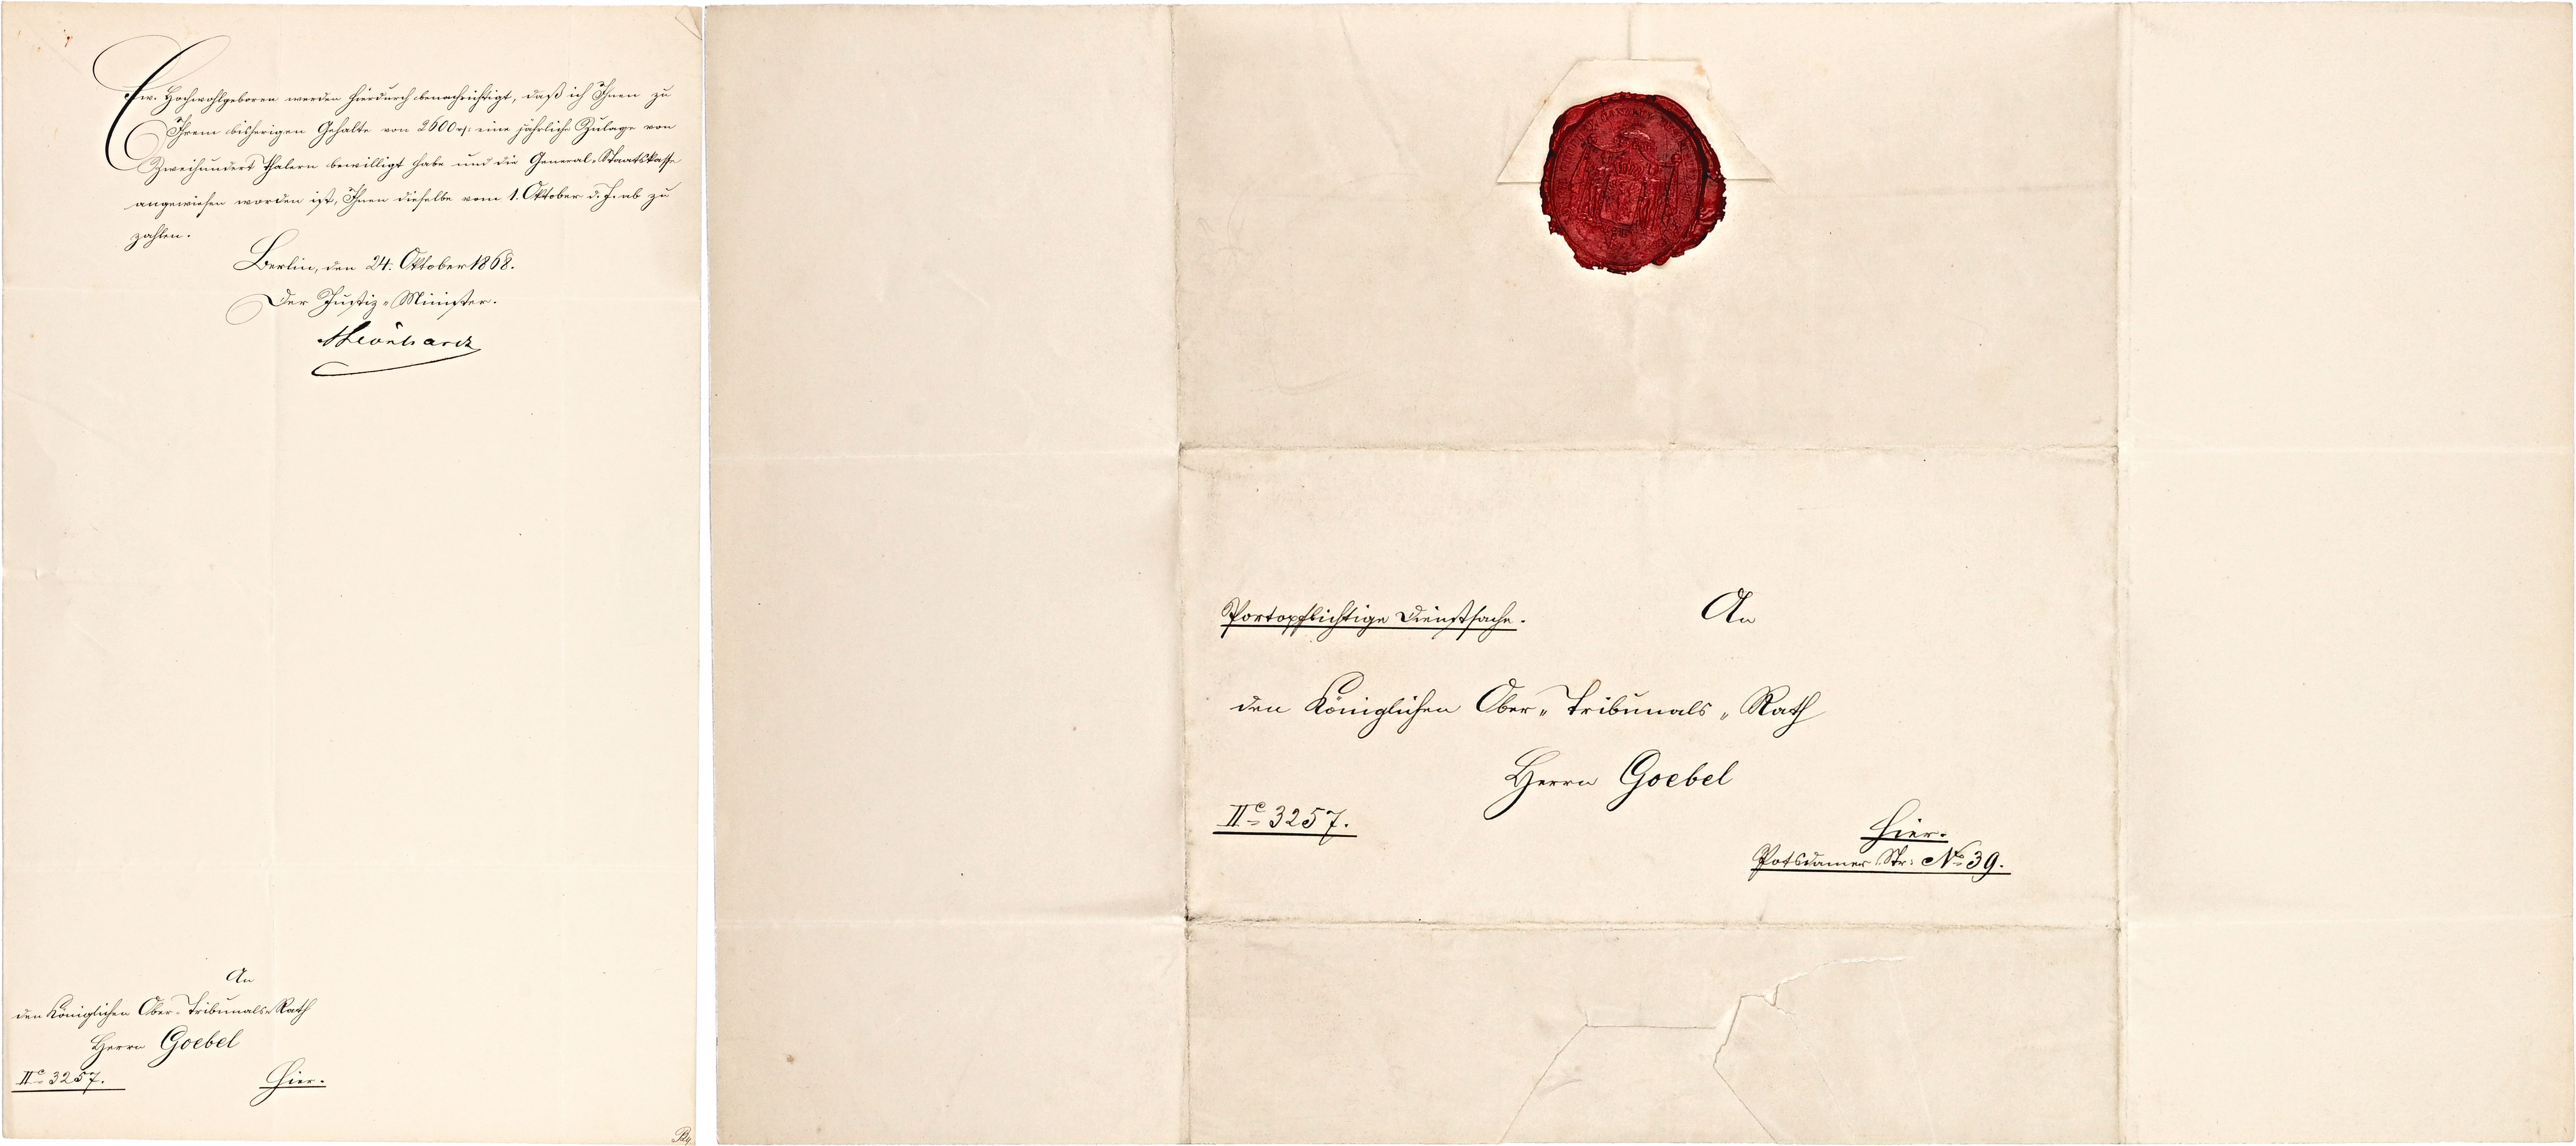 Ew. Hochwohlgeboren werden hierdurch benachrichtigt, daß ich Ihnen zu
Ihrem bisherigen Gehalte von 2600 rf: eine jährliche Zulage von
Zweihundert Thalern bewilligt habe und die General-Staatskasse
angewiesen worden ist, Ihnen dieselbe vom 1. Oktober d. J. ab zu
zahlen.
Berlin, den 24. Oktober 1868.
Der Justiz-Minister.
Leonhardt
An
den Königlichen Ober-Tribunals-Rath
Herrn Goebel
IIc 3257.
Hier.
Portopflichtige Dienstsache.
An
den Königlichen Ober-Tribunals-Rath
Herrn Goebel
IIc 3257.
Hier.
Potsdamer Str: No 39.